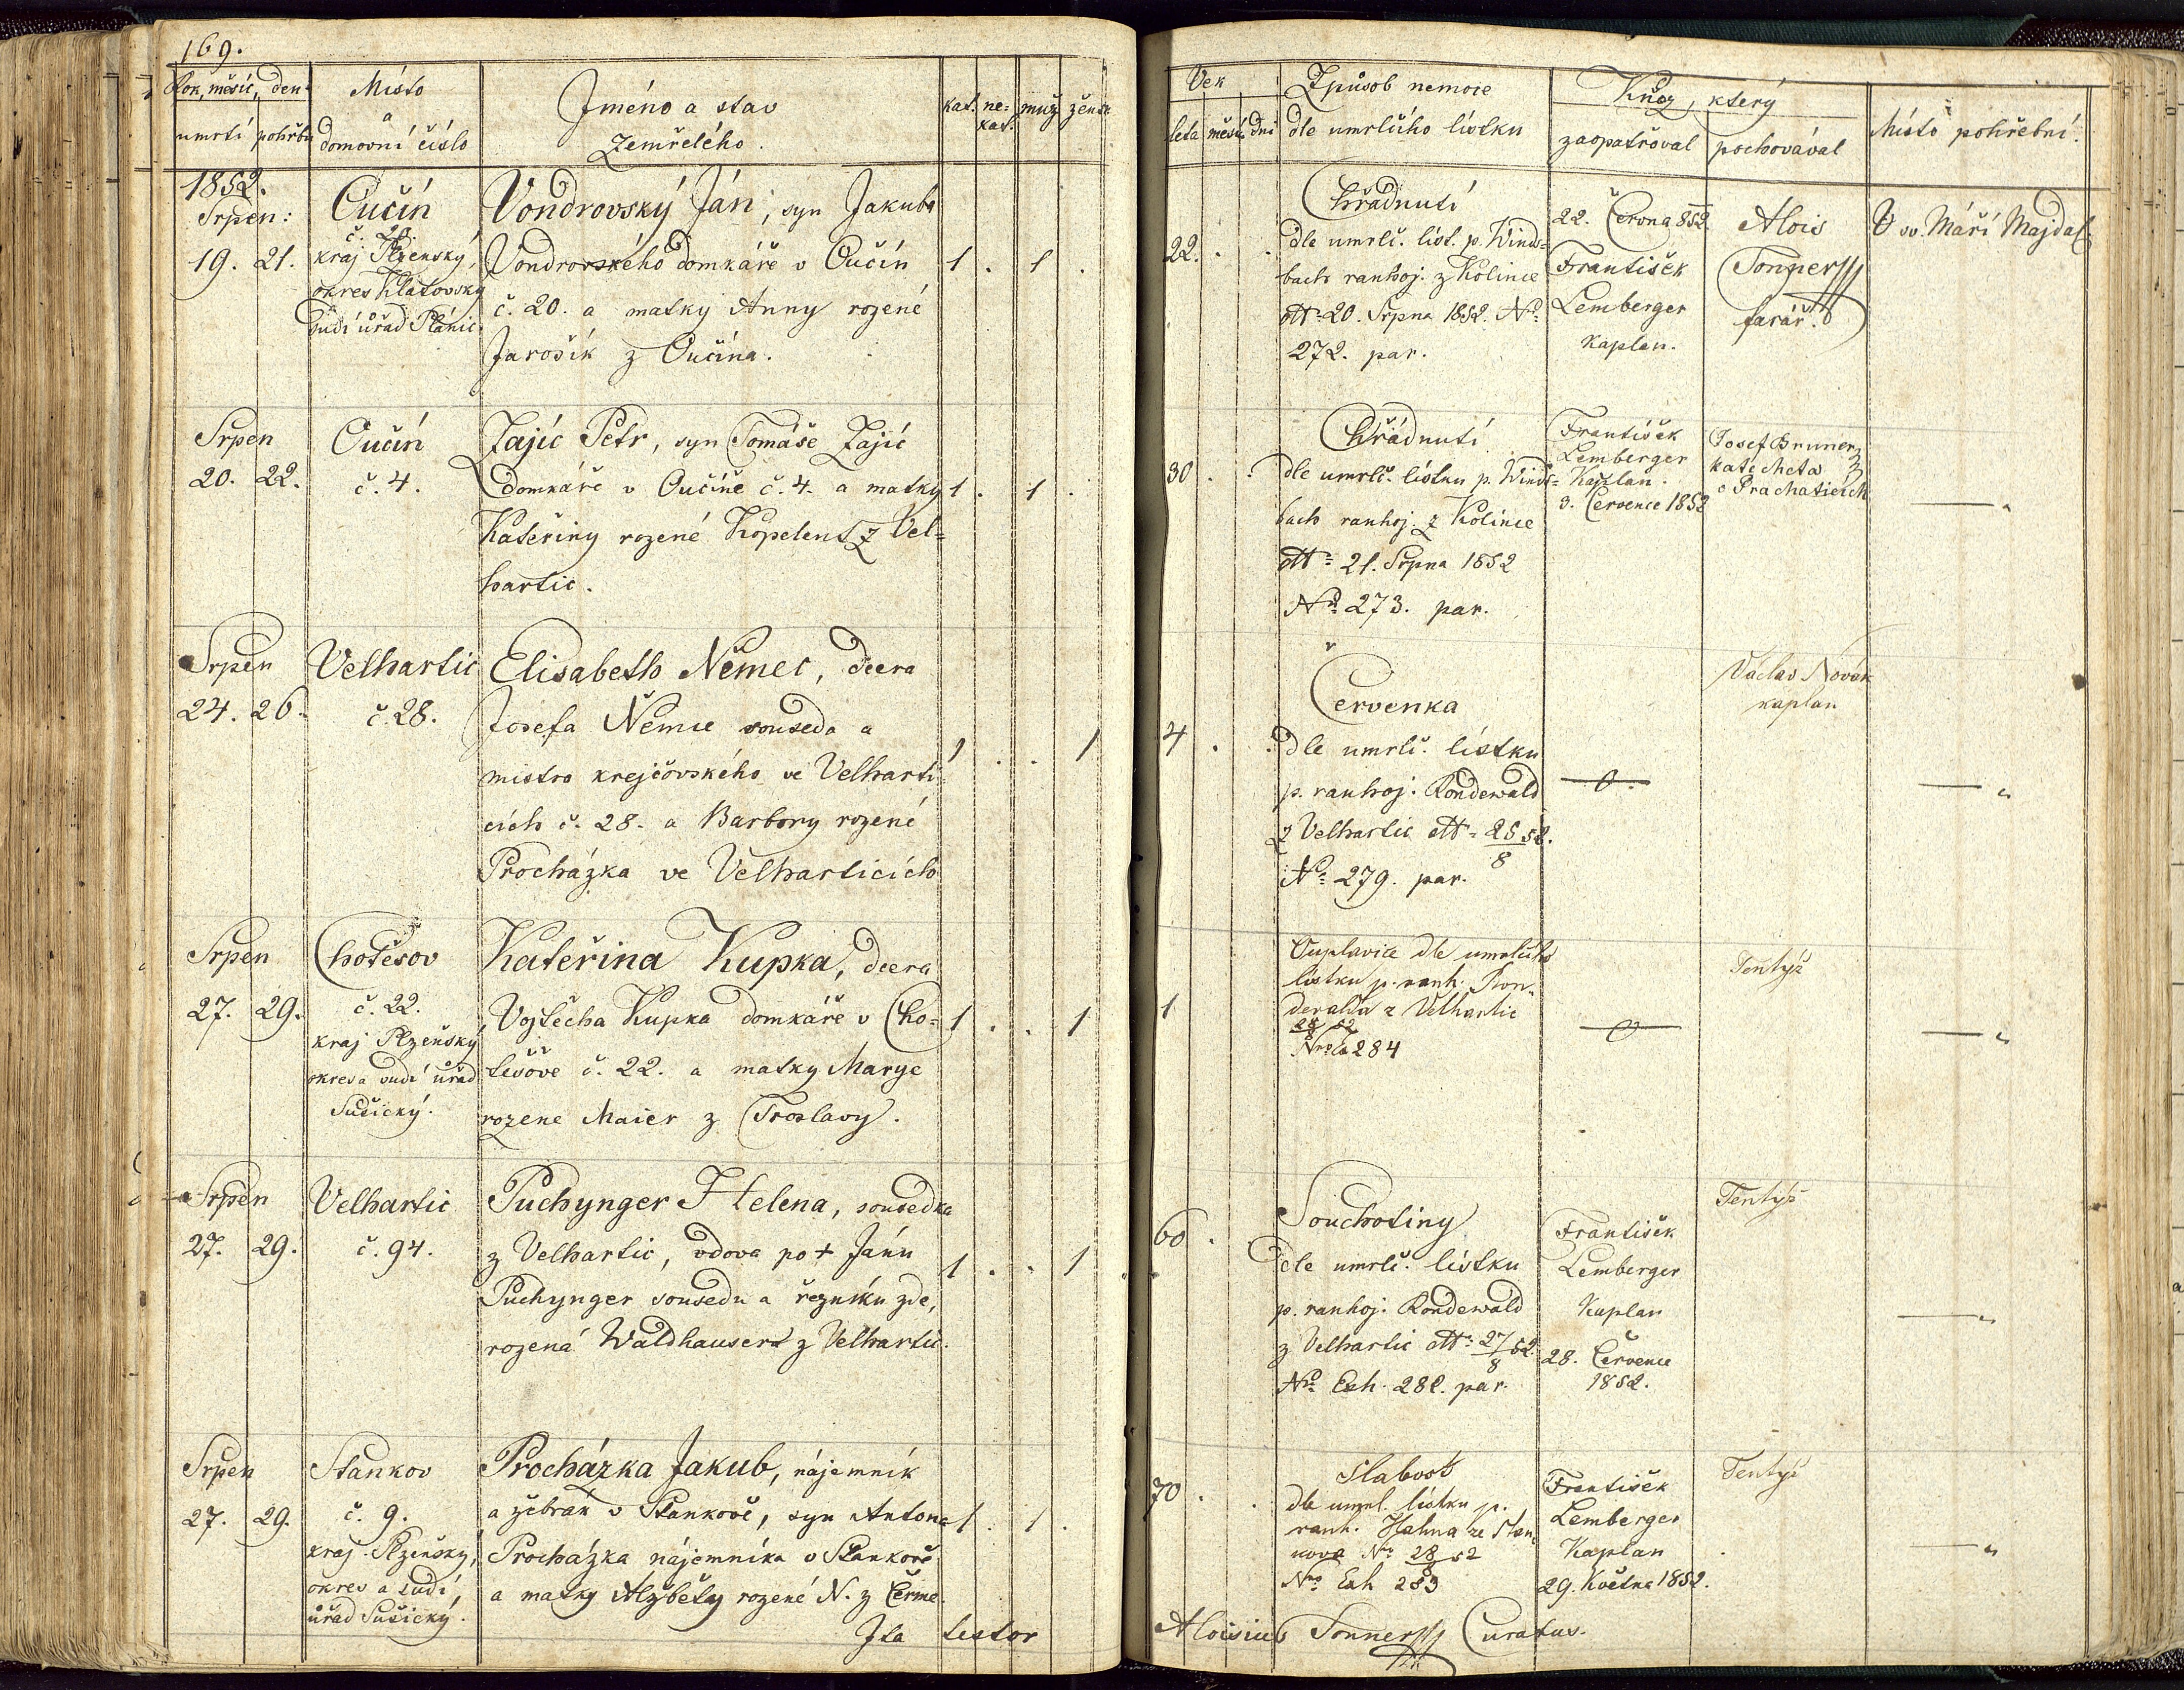 169.
Rok, měsíc, den
umrtí pohřbu
Místo
a
domovní číslo
Jméno a stav
Zemřelého.
kat. ne=
kat.
muž. žensk.
1852.
Srpen:
19. 21.
Oučín
č. 20
kraj Plzenský,
okres Klatovský
sudí úřad Plánic.
Vondrovský Ján, syn Jakuba
Vondrovského domkáře v Oučín
č. 20. a matky Anny rozené
Jarošik z Oučína.
1 . 1 .
Srpen
20. 22.
Oučín
č. 4.
Zajíc Petr, syn Tomáše Zajíc
domkáře v Oučíně č. 4. a matky
Kateřiny rozené Kopelent z Vel=
hartic.
1 . 1 .
Srpen
24. 26.
Velhartic
č. 28.
Elisabeth Němec, dcera
Josefa Němce souseda a
mistra krejčovského ve Velharti=
cích č. 28. a Barbory rozené
Procházka ve Velharticích
1 . . 1
Srpen
27. 29.
Chotěšov
č. 22.
kraj Plzeňský
okres a sudí úřad
Sušický.
Kateřina Kupka, dcera
Vojtěcha Kupka domkáře v Cho=
těšově č. 22. a matky Marye
rozene Maier z Troslavy.
1 . . 1
Srpen
27. 29.
Velhartic
č. 94.
Puchynger Helena, sousedka
z Velhartic, vdova po + Jánu
Puchynger sousedu a řezníku zde,
rozená Waldhausert z Velhartic.
1 . . 1
Srpen
27. 29.
Stankov
č. 9.
kraj Plzeňský,
okres a sudí
úřad Sušický.
Procházka Jakub, nájemník
a žebrák v Stankově, syn Antona
Procházka nájemníka v Stankově
a matky Alžběty rozené N. z Čerme.
1 . 1 .
Ita testor
Vek
leta měsíc dni
Způsob nemoce
dle umrlčího lístku
Kněz, který
zaopatřoval pochovával
Místo pohřební.
22. . .
Chřadnutí
dle umrlč. líst. p. Winds=
bach ranhoj. z Kolince
dtt: 20. Srpna 1852. No
272. par.
22. Června 852.
František
Lemberger
Kaplan.
Alois
Tonner
farář.
U sv. Máří Majdal.
30 . .
Chřádnutí
dle umrlč. lístku p. Winds=
bach ranhoj. z Kolince
dtt: 21. Srpna 1852
No 273. par.
František
Lemberger
Kaplan.
3. Července 1852
Josef Bruner
katecheta
v Prachaticích
— „
4 . .
Červenka
dle umrlč. lístku
p. ranhoj. Rondewald
z Velhartic dtt: 25/8 52.
No 279. par.
—0—
Václav Novák
kaplan
— „
1
Ouplavice dle umrlčího
lístku p. ranh. Ron=
dewalda z Velhartic
28/8 52
Nro 284
—0—
Tentýž
— „
60 .
Souchotiny
dle umrlč. lístku
p. ranhoj. Rondewald
z Velhartic dtt: 27/8 52.
No Exh. 282. par.
František
Lemberger
Kaplan
28. Července
1852.
Tentýž
— „
70 . .
Slabost
dle umrl. lístku p.
ranh. Hahna ze Stan=
kova No 28/8 52
No Exh 283
František
Lemberger
Kaplan
29. Května 1852.
Tentýž
— „
Aloisius Tonner Curatus.